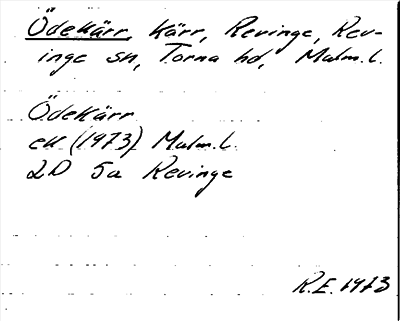 Ödekärr, Kärr, Revinge, Rev-
inge sn, Torna hd, Malm.l.
Ödekärr
ek (1973) Malm.l.
2D 5a Revinge
R.E. 1973